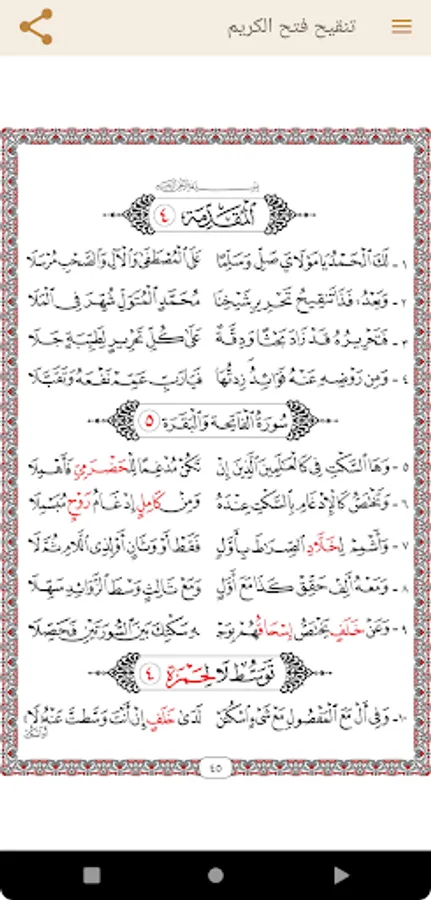 تنقيح فتح الكريم
المقدمة ٤
١- لَكَ الْحَمْدُ يَا مَوْلَايَ صَلِّ وَسَلِّمَا عَلَى الْمُصْطَفَى وَالْآلِ وَالصَّحْبِ مُرْسَلَا
٢- وَبَعْدُ: فَذَا تَنْقِيحُ تَحْرِيرِ شَيْخِنَا مُحَمَّدٍ الْمُتَوَلِّ شُهِّرَ فِي الْمَلَا
٣- فَتَحْرِيرُهُ قَدْ زَادَ بَحْثًا وَدِقَّةً عَلَى كُلِّ تَحْرِيرٍ لِطَيِّبَةٍ جَلَا
٤- وَمِنْ رَوْضِهِ عَنْهُ فَوَائِدُ زِدْتُهَا فَيَارَبِّ عَمِّمْ نَفْعَهُ وَتَقَبَّلَا
سُورَةُ الْفَاتِحَةِ وَالْبَقَرَةِ ٥
٥- وَهَا السَّكْتِ فِي كَالْعَالَمِينَ الَّذِينَ إِنْ تَكُنْ مُدْغِمًا لِلْحَضْرَمِيِّ فَأَهْمِلَا
٦- وَيَخْتَصُّ كَالْإِدْغَامِ بِالسَّكْتِ عِنْدَهُ وَمِنْ كَامِلٍ إِدْغَامُ رَوْحٍ
٧- وَأَشْمِمْ لِخَلَّادِ الصِّرَاطَ بِأَوَّلٍ فَقَطْ أَوْ وَثَانٍ أَوْ لِذِي اللَّامِ ثُمَّ لَا
٨- وَمَعْهُ أَلِفْ حَقِّقْ كَذَا مَعَ أَوَّلٍ وَمَعْ ثَالِثٍ وَسِّطْ الزَّوَائِدَ سَهِّلَا
٩- وَعَنْ خَلَفٍ يَخْتَصُّ إِسْحَاقُهُمْ بِوَجْهِ سَكْتِكَ بَيْنَ السُّورَتَيْنِ فَحَصِّلَا
تَوَسُّطُ لَا لِحَمْزَةَ ٤
١٠- وَفِي أَلْ مَعَ الْمَفْصُولِ مَعْ شَيْءٍ اسْكُتَنْ لَدَى خَلَفٍ إِنْ أَنْتَ وَسَّطْتَ عَنْهُ لَا
٤٥